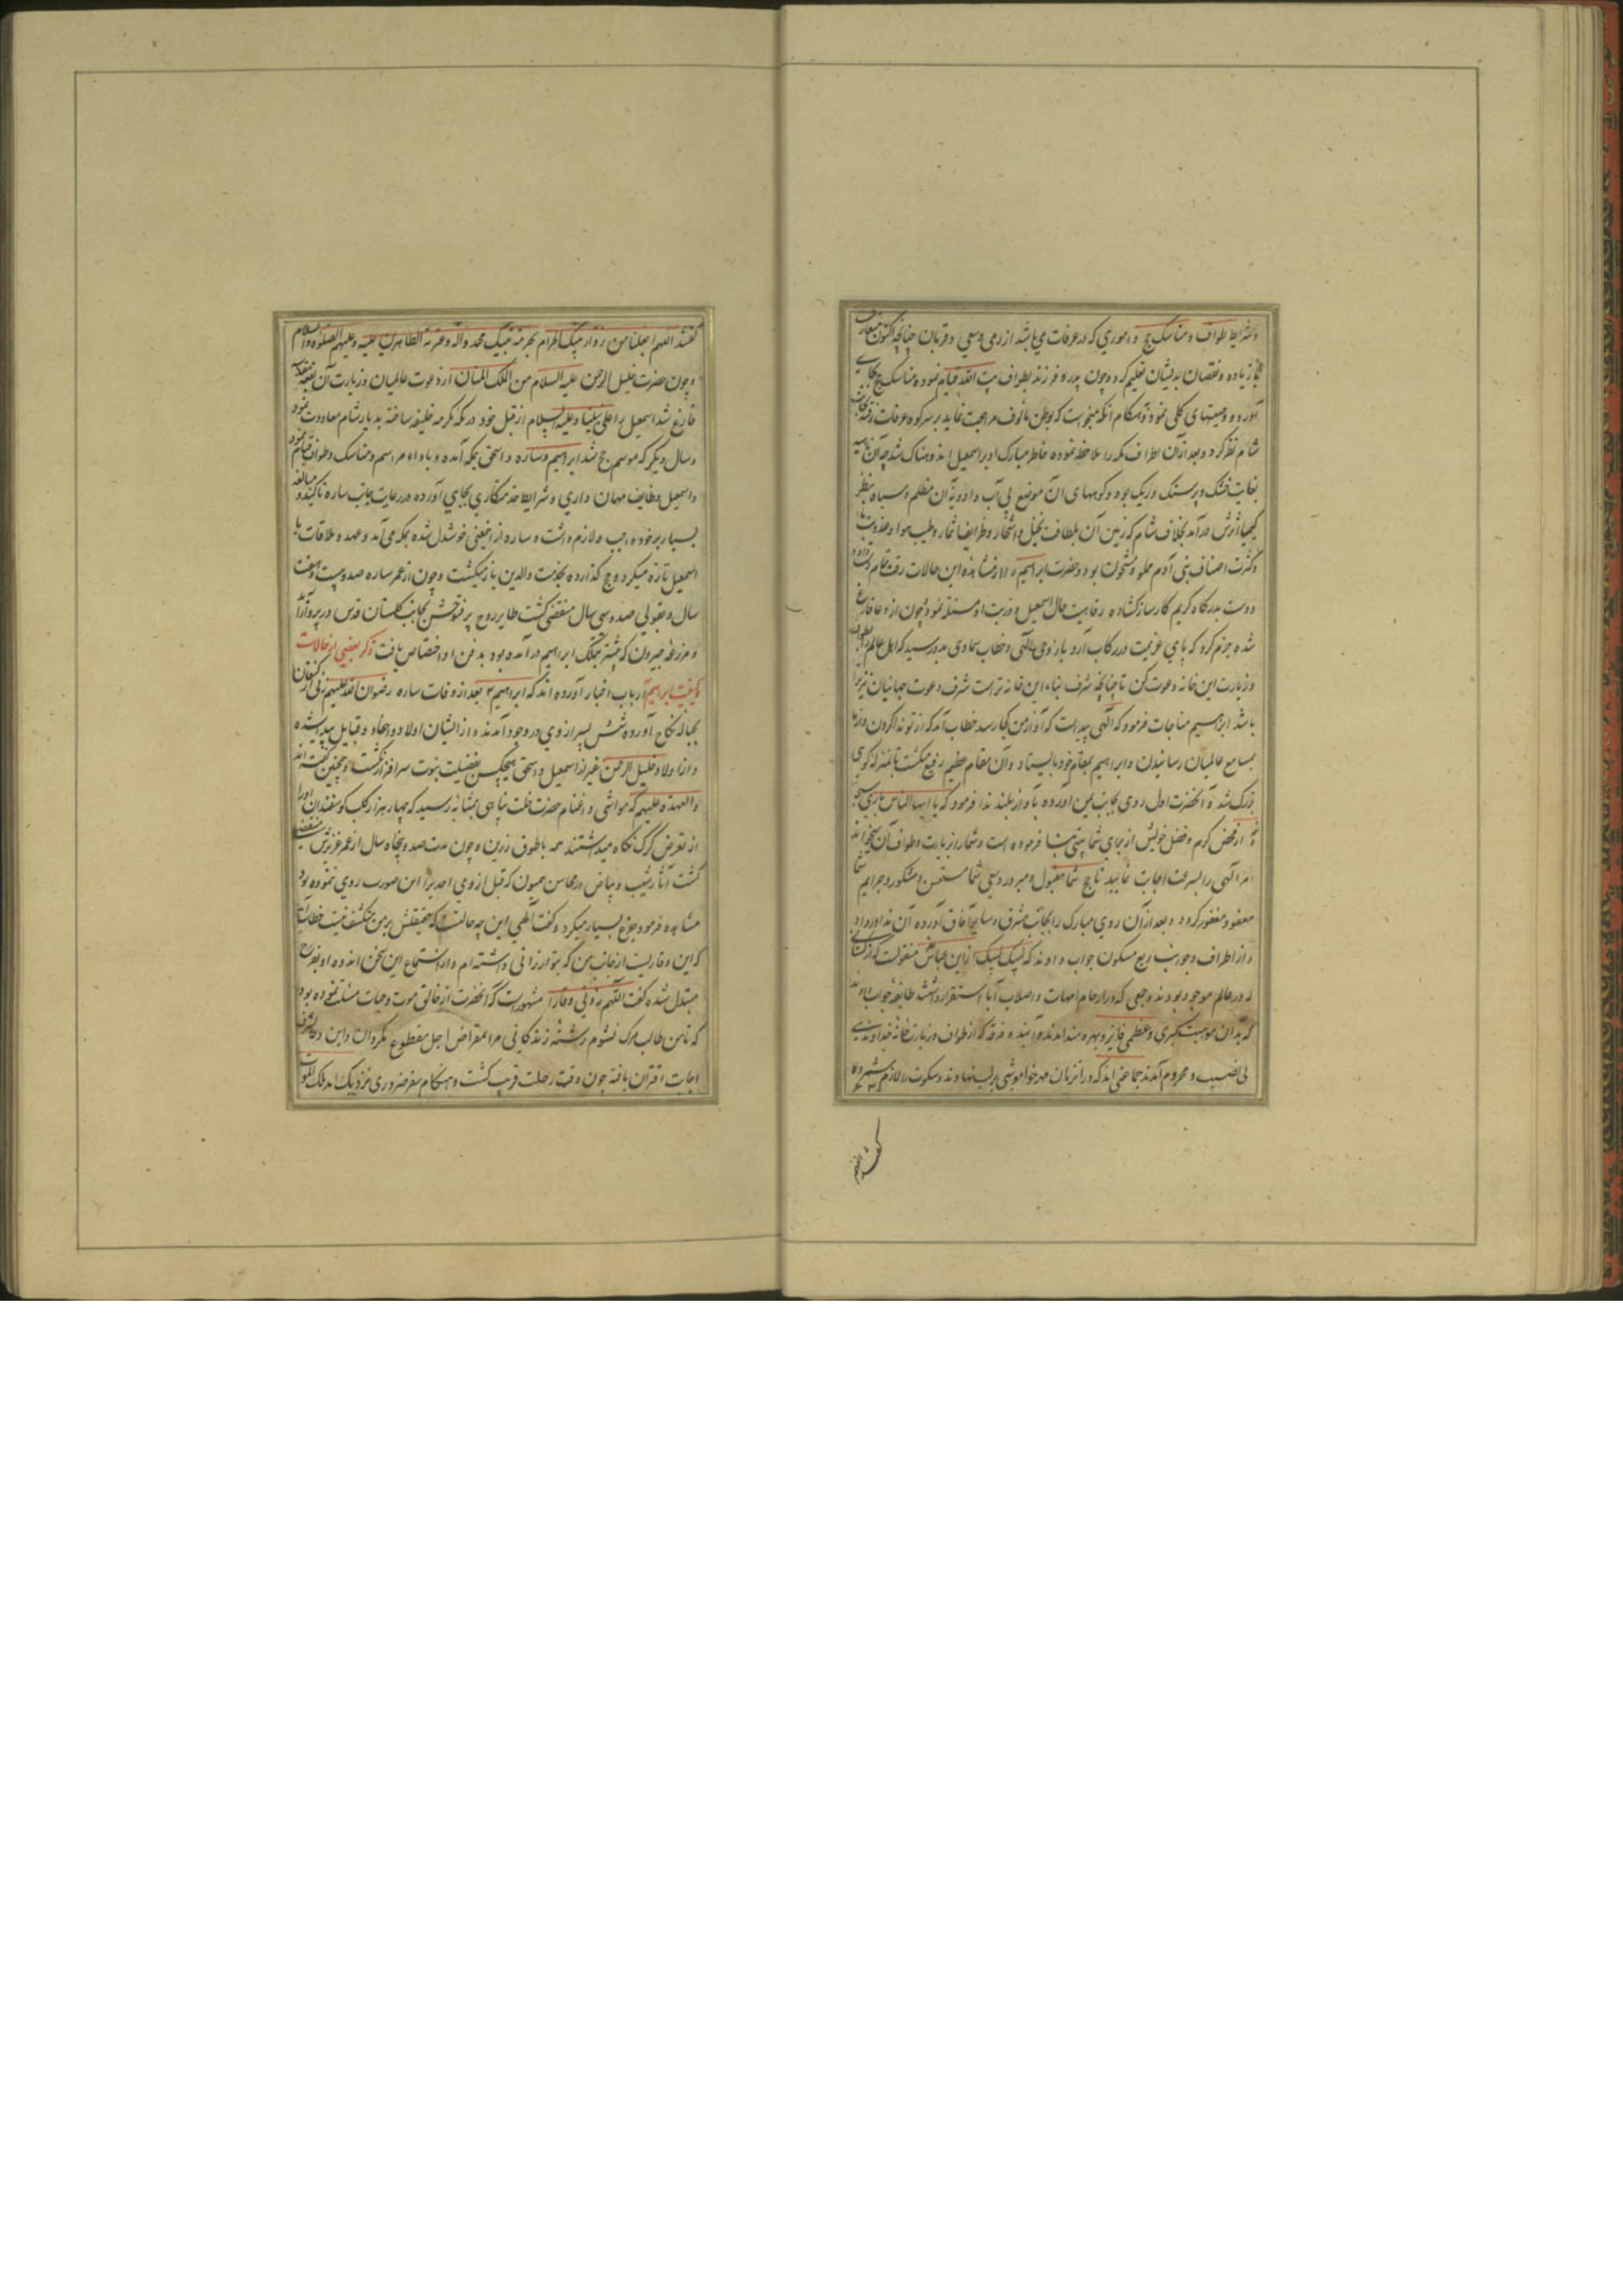 و شرایط طواف و مناسک حج و اموری که در عرفات می باشد از رمی و سعی و قربان چنانچه اکنون متعارف
زیاده و نقصان بدیشان تعلیم کرد و چون پدر و فرزند بطواف بیت الله قیام نموده مناسک حج بجای
آورد و وصیتهای کلی نمود و هنگام آنکه میخواست که بوطن مألوف مراجعت نماید بر سر کوه عرفات رفته بجانب
شام نظر کرد و بعد از آن اطراف مکه را ملاحظه نموده خاطر مبارک او بر اسمعیل اندوهناک شد چه آن ناحیه
بغایت خشک و پر سنک و ریک بود و کوههای آن موضع بی آب و اودیه آن مظلم و سیاه بنظر
کیمیا اثرش در آمد بخلاف شام که زمین آن بلطافت نخیل و اشجار و طرایف اثمار و طیب هوا و عذوبت ما
و کثرت اصناف بنی آدم مملو و مشحون بود و حضرت ابراهیم را از مشاهده این حالات رقت تمام دست داد
دست بدرگاه کریم کارساز گشاده رفاهیت حال اسمعیل و ذریت او مسئلت نمود و چون از دعا فارغ
شده جزم کرد که پای عزیمت در رکاب آرد باز وحی الهی و خطاب سماوی بدو رسید که اهل عالم را بطواف
و زیارت این خانه دعوت کن تا چنانچه شرف بناء این خانه تراست شرف دعوت جهانیان نیز ترا
باشد ابراهیم مناجات فرمود که الهی پیداست که آواز من کجا رسد خطاب آمد که از تو ندا کردن و از ما
بمسامع عالمیان رسانیدن و ابراهیم بمقام خود بالیستاد و آن مقام عظیم رفیع گشت بمنزله کوهی
بزرک شد و آنحضرت اول روی بجانب یمن آورده بآواز بلند ندا فرمود که یا ایها الناس باری سبحا
نه از محض کرم و فضل خویش از برای شما بیتی بنا فرموده است و شما را بزیارت و طواف آن میخواند
امر الهی را بسرعت اجابت نمایید تا حج شما مقبول و مبرور و سعی شما مستحسن و مشکور و جرایم شما
معفو و مغفور گردد و بعد از آن روی مبارک را بجانب مشرق و سایر آفاق آورده آن ندا در داد
و از اطراف و جوانب ربع مسکون جواب دادند که لبیک لبیک از ابن عباس منقولست که از کسانی
که در عالم موجود بودند و جمعی که در ارحام امهات و اصلاب آبا استقرار داشتند طایفه جواب دادند
که بدان موهبت کبری و عظمی فایز و بهره مند اند و آیند و فرقه که از طواف و زیارت خانه خداوندی
بی نصیب و محروم آمدند جماعتی اند که در آن زمان مهر خاموشی بر لب نهادند و سکوت را لازم شمرده
گفتند اللهم
گفتند اللهم اجعلنا من زوار بیتک الحرام بحرمة نبیک محمد و اله و عترته الطاهرین علیه و علیهم الصلوة و السلام
و چون حضرت خلیل الرحمن علیه السلام من الملک المنان از دعوت عالمیان و زیارت آن بقعه مقدسه
فارغ شد اسمعیل را علی نبینا و علیه السلام از قبل خود در مکه مکرمه خلیفه ساخته بدیار شام معاودت نمود
و سال دیگر که موسم حج شد ابراهیم و ساره و اسحق بمکه آمده و باداء مراسم و مناسک و طواف قیام نمود
و اسمعیل وظایف مهمان داری و شرایط خدمتکاری بجای آورده در رعایت جانب ساره تاکید و مبالغه
بسیار بر خود واجب و لازم داشت و ساره از اینمعنی خوشدل شده بمکه می آمد و عهد و ملاقات با
اسمعیل تازه میکرد و حج گذارده بخدمت والدین باز میگشت و چون از عمر ساره صد و بیست و هفت
سال و بقولی صد و سی سال منقضی گشت طایر روح پر فتوحش بجانب گلستان قدس در پرواز آمد
و مزرعه حبرون که پیشتر بتملک ابراهیم در آمده بود بدفن او اختصاص یافت ذکر بعضی از حالات
و کیفیت ابراهیم ارباب اخبار آورده اند که ابراهیم بعد از وفات ساره رضوان الله علیهم زنی از کنعان
بحباله نکاح آورده شش پسر از وی در وجود آمدند و از ایشان اولاد و احفاد و قبایل پیدا شده
و از اولاد خلیل الرحمن غیر از اسمعیل و اسحق هیچکس بفضیلت نبوت سرافراز نگشت و همچنین گفته اند
و العهدة علیهم که مواشی و اغنام حضرت خلت پناهی بمثابه رسید که چهار هزار کلب گوسفندان او را
از تعرض گرگ نگاه میداشتند همه باطوق زرین و چون مدت صد و پنجاه سال از عمر عزیزش منقضی
گشت آثار شیب و بیاض در محاسن همیون که قبل از وی احدیرا این صورت روی ننموده بود
مشاهده فرمود جزع بسیار میکرد و گفت الهی این چه حالت که حقیقتش بر من منکشف نیست خطاب آمد
که این وقاریست از جانب من که بتو ارزانی داشته ام و از استماع این سخن اندوه او بفرح
مبتدل شده گفت اللهم زدنی وقارا مشهورست که آنحضرت از خالق موت و حیات مسئلت نموده بود
که تا من طالب مرگ نشوم رشته زندگانی مرا بمقراض اجل مقطوع نگردان و این دعا بشرف
اجابت اقتران یافته چون وقت رحلت قریب گشت و هنگام سفر ضروری نزدیک آمد ملک الموت